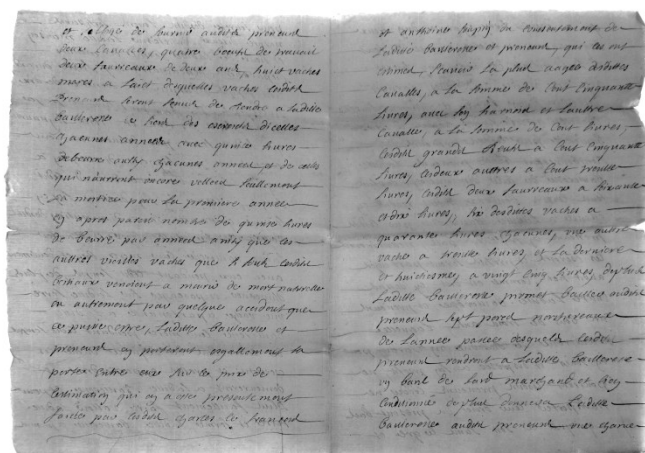 et oblige de fournir audit preneur
deux cavalles, quatre boeufs de travail
deux taureaux de deux ans, huict vaches
meres a laict desquelles vaches ledit
preneur sera tenu de rendre a ladite
bailleresse au lieu des
chacunes années avec quinze livres
de beurre aussy chacunes années et de celles
qui n'auront encores vellees seullement
la moitié pour la premiere année
et apres pareil nombre de quinze livres
de beurre par années ainsy que les
autres vieilles vaches que sy lesdits
animaux venoient a mourir de mort naturelle
ou autrement par quelques accident que
ce puisse estre, laditte bailleresse et
preneur en porteront esgallement la
perte entre eux sur le prix de
l'estimation qui en a esté presentement
faicte par ledit charles le francois
et anthoine du consentement de
ladite bailleresse et preneur, qui les ont
estimés scavoir la plus aagee desdites
cavalles, a la somme de cent cinquante
livres, avec son harnois et l'autre
cavalle, a la somme de cent livres,
a cent cinquante
livres, les deux autres a cent trente
livres, lesdits deux taureaux a soixante
et dix livres, six desdites vaches a
quarante livres chacunes, une autre
vache a trente livres, et la derniere
et huictiesme, a vingt cinq livres, de plus
laditte bailleresse promet bailler audit
preneur sept porcs nortureaux
de l'année passée desquels ledit
preneur rendra a laditte bailleresse
un de lard marchant et bien
conditionné de plus donnera laditte
bailleresse audit preneur une charue